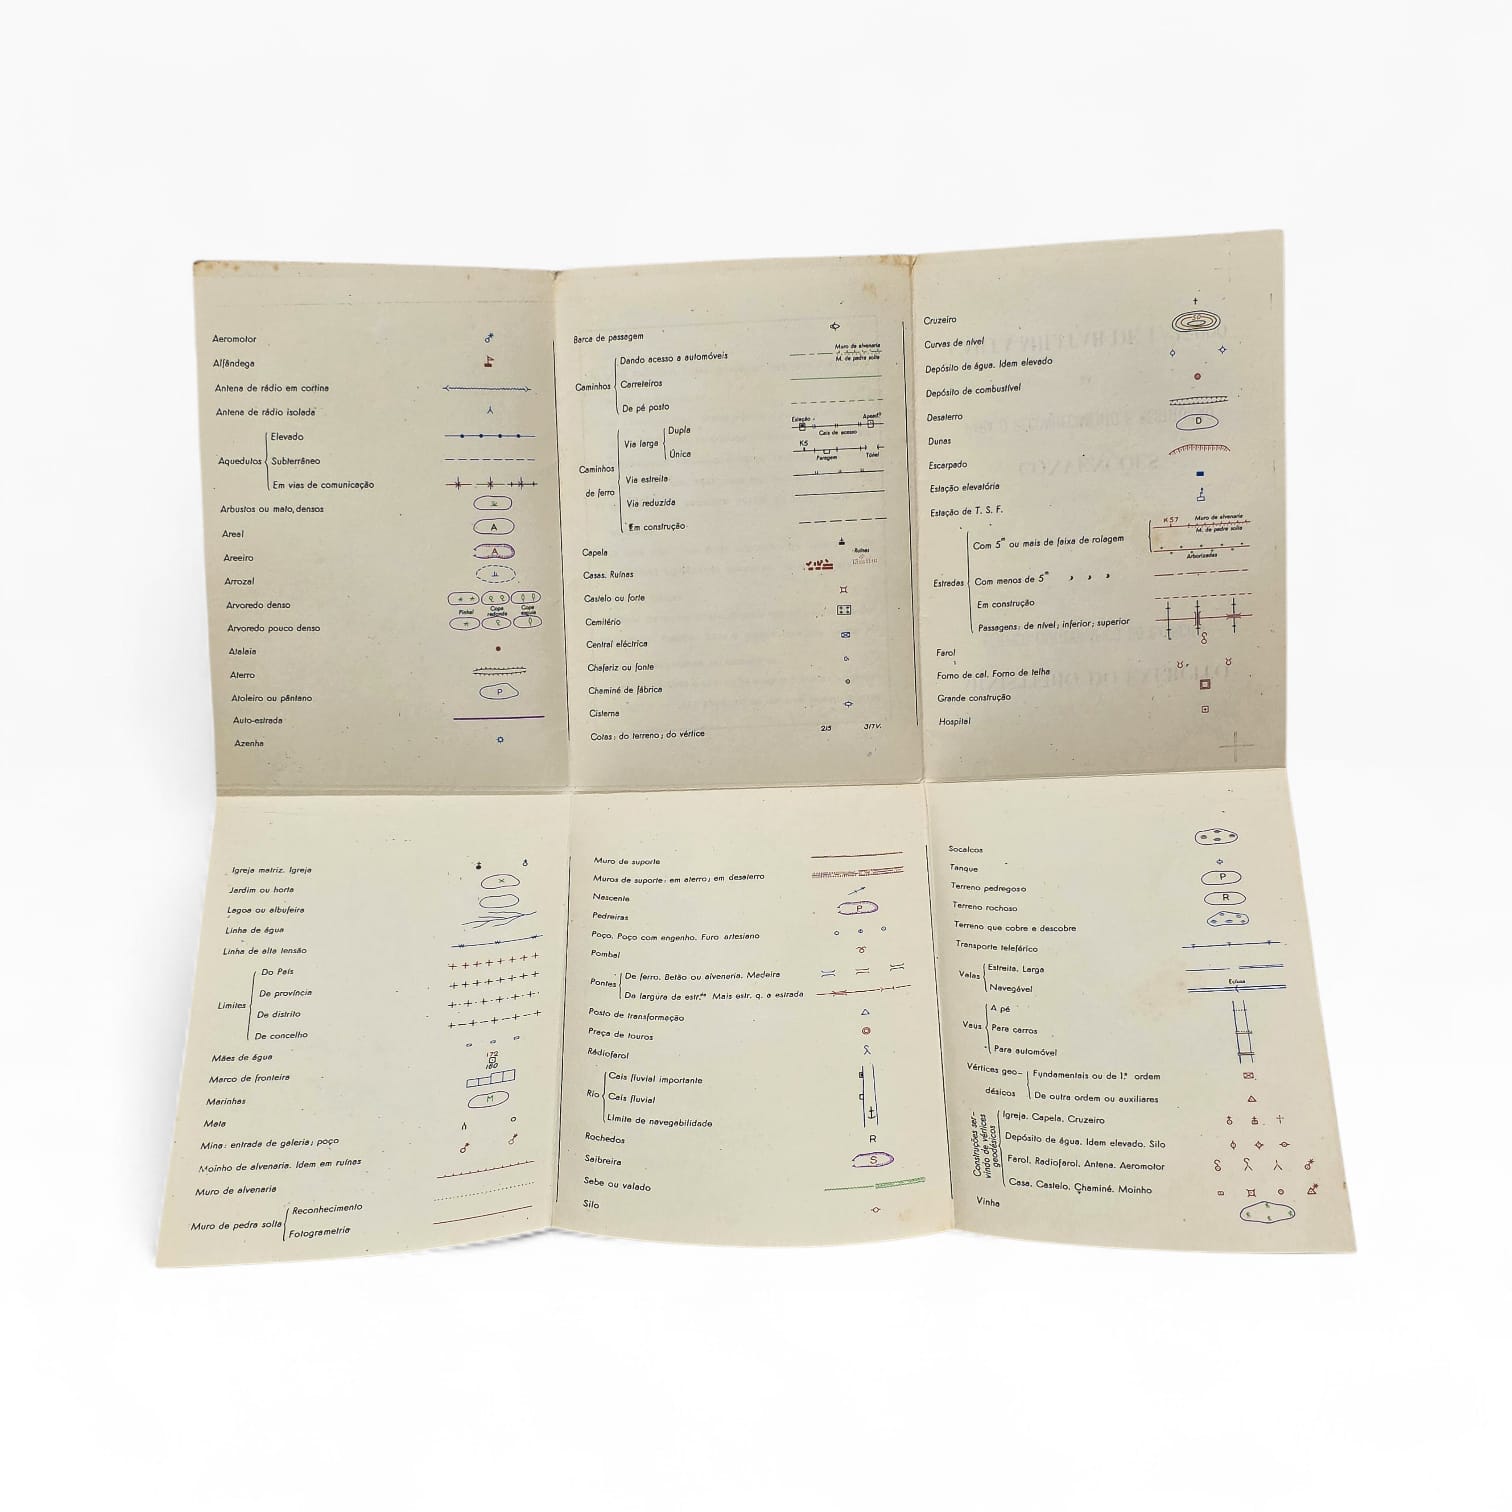 Aeromotor
Alfândega
Antena de rádio em cortina
Antena de rádio isolada
Aquedutos
Elevado
Subterrâneo
Em vias de comunicação
Arbustos ou mato, densos
Areal A
Areeiro A
Arrozal
Arvoredo denso
Pinhal Copa redonda Copa esguia
Arvoredo pouco denso
Atalaia
Aterro
Atoleiro ou pântano P
Auto-estrada
Azenha
Barca de passagem
Caminhos
Dando acesso a automóveis Muro de alvenaria M. de pedra solta
Carreteiros
De pé posto
Caminhos de ferro
Via larga
Dupla Estação Apead.º Cais de acesso
Única K5 Paragem Túnel
Via estreita
Via reduzida
Em construção
Capela
Casas. Ruínas Ruínas
Castelo ou forte
Cemitério
Central eléctrica
Chafariz ou fonte
Chaminé de fábrica
Cisterna
Cotas: do terreno; do vértice 215 317V.
Cruzeiro
Curvas de nível 50
Depósito de água. Idem elevado
Depósito de combustível
Desaterro
Dunas D
Escarpado
Estação elevatória
Estação de T. S. F.
Estradas
Com 5m ou mais de faixa de rolagem K57 Muro de alvenaria M. de pedra solta Arborizadas
Com menos de 5m , , ,
Em construção
Passagens: de nível; inferior; superior
Farol
Forno de cal. Forno de telha
Grande construção
Hospital
Igreja matriz. Igreja
Jardim ou horta
Lagoa ou albufeira
Linha de água
Linha de alta tensão
Limites
Do País
De província
De distrito
De concelho
Mães de água
Marco de fronteira 172 180
Marinhas
Mata M
Mina: entrada de galeria; poço
Moinho de alvenaria. Idem em ruínas
Muro de alvenaria
Muro de pedra solta
Reconhecimento
Fotogrametria
Muro de suporte
Muros de suporte: em aterro; em desaterro
Nascente
Pedreiras P
Poço. Poço com engenho. Furo artesiano
Pombal
Pontes
De ferro. Betão ou alvenaria. Madeira
Da largura da estr.da Mais estr. q. a estrada
Posto de transformação
Praça de touros
Rádiofarol
Rio
Cais fluvial importante
Cais fluvial
Limite de navegabilidade
Rochedos R
Saibreira S
Sebe ou valado
Silo
Socalcos
Tanque
Terreno pedregoso P
Terreno rochoso R
Terreno que cobre e descobre
Transporte teleférico
Valas
Estreita. Larga
Navegável Eclusa
Vaus
A pé
Para carros
Para automóvel
Vértices geodésicos
Fundamentais ou de 1.ª ordem
De outra ordem ou auxiliares
Construções servindo de vértices geodésicos
Igreja. Capela. Cruzeiro
Depósito de água. Idem elevado. Silo
Farol. Radiofarol. Antena. Aeromotor
Casa. Castelo. Chaminé. Moinho
Vinha